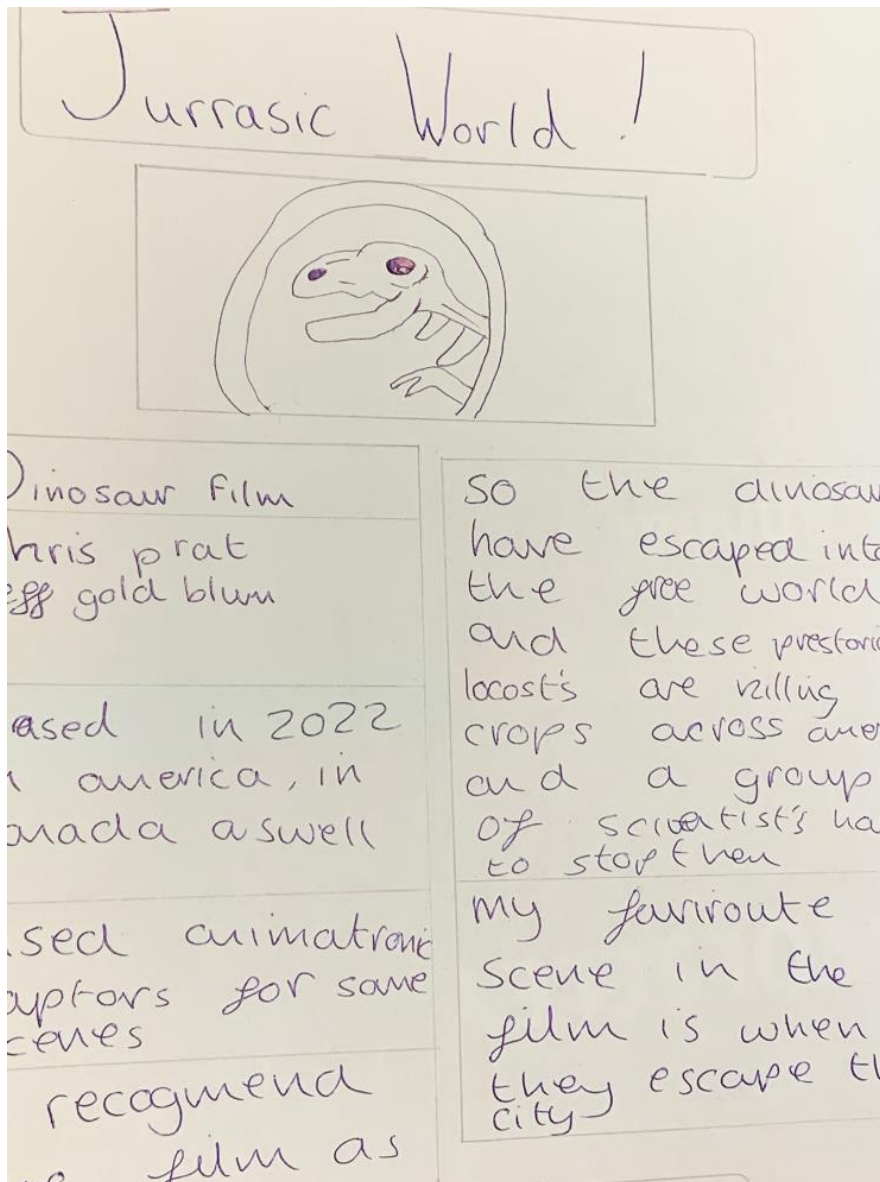 Jurrasic World !
Dinosaur Film
hris prat
eff gold blum
eased in 2022
america, in
anada aswell
used animatronic
aptors for some
cenes
recogmend
film as
so the dinosaur
have escaped into
the free world
and these prestoric
locost's are killing
crops across amer
and a group
of scientist's ha
to stop then
my faviroute
scene in the
film is when
they escape th
city